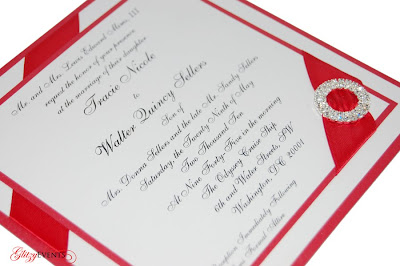 Mr. and Mrs. Louis Edward Mom, III
request the honor of your presence
at the marriage of their daughter
Tracie Nicole
to
Walter Quincy Sellers
Son of
Mrs. Donna Sellers and the late Mr. Sandy Sellers
Saturday, the Twenty Ninth of May
Two Thousand Ten
At Nine Forty-Five in the morning
The Odyssey Cruise Ship
6th and Water Streets, SW
Washington, D.C. 20001
Immediately Following
Formal Attire
GlitzyEVENTS